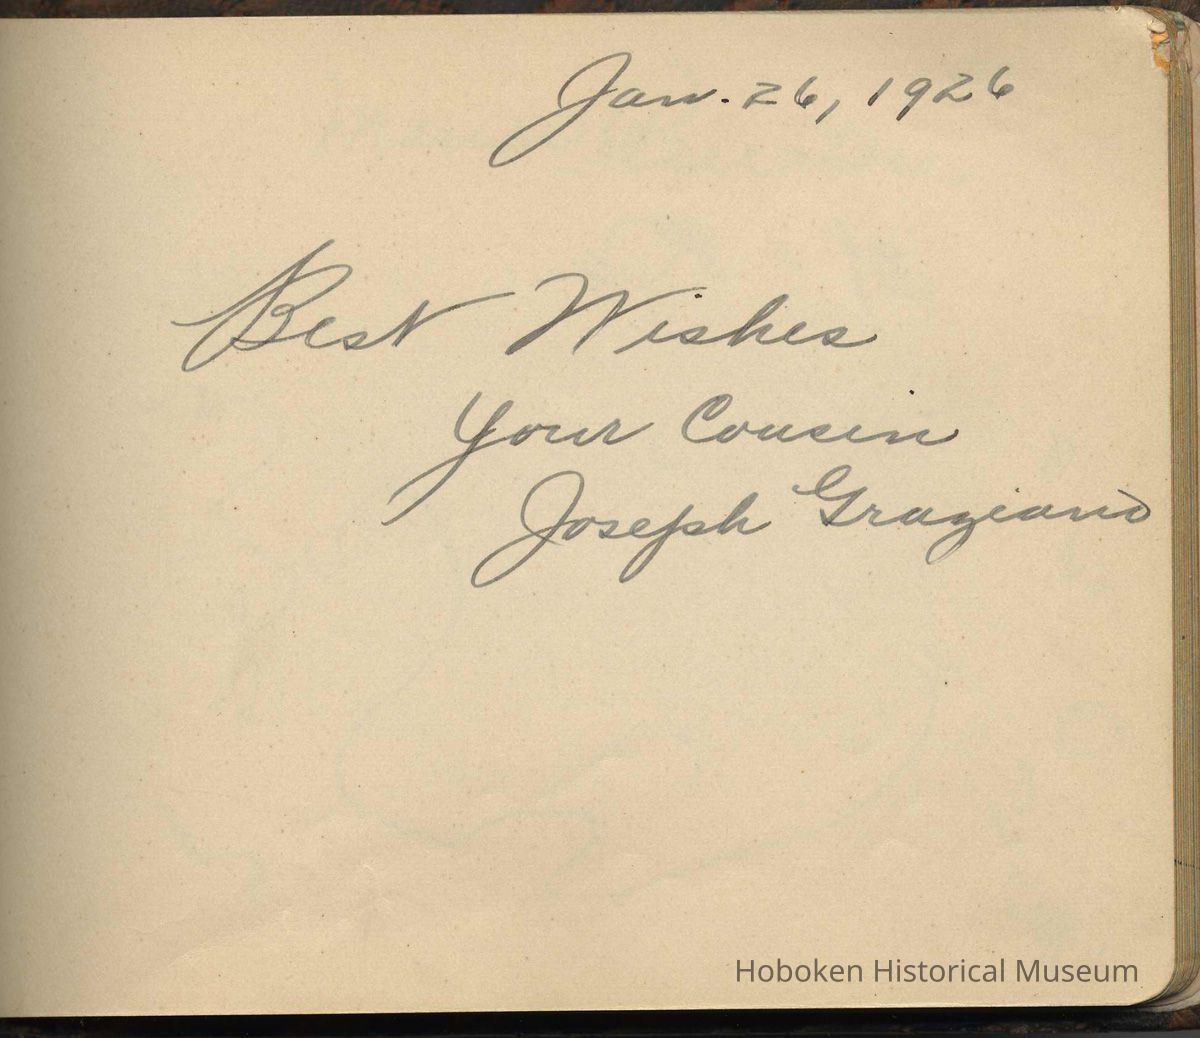 Jan. 26, 1926
Best Wishes
Your Cousin
Joseph Graziano
Hoboken Historical Museum